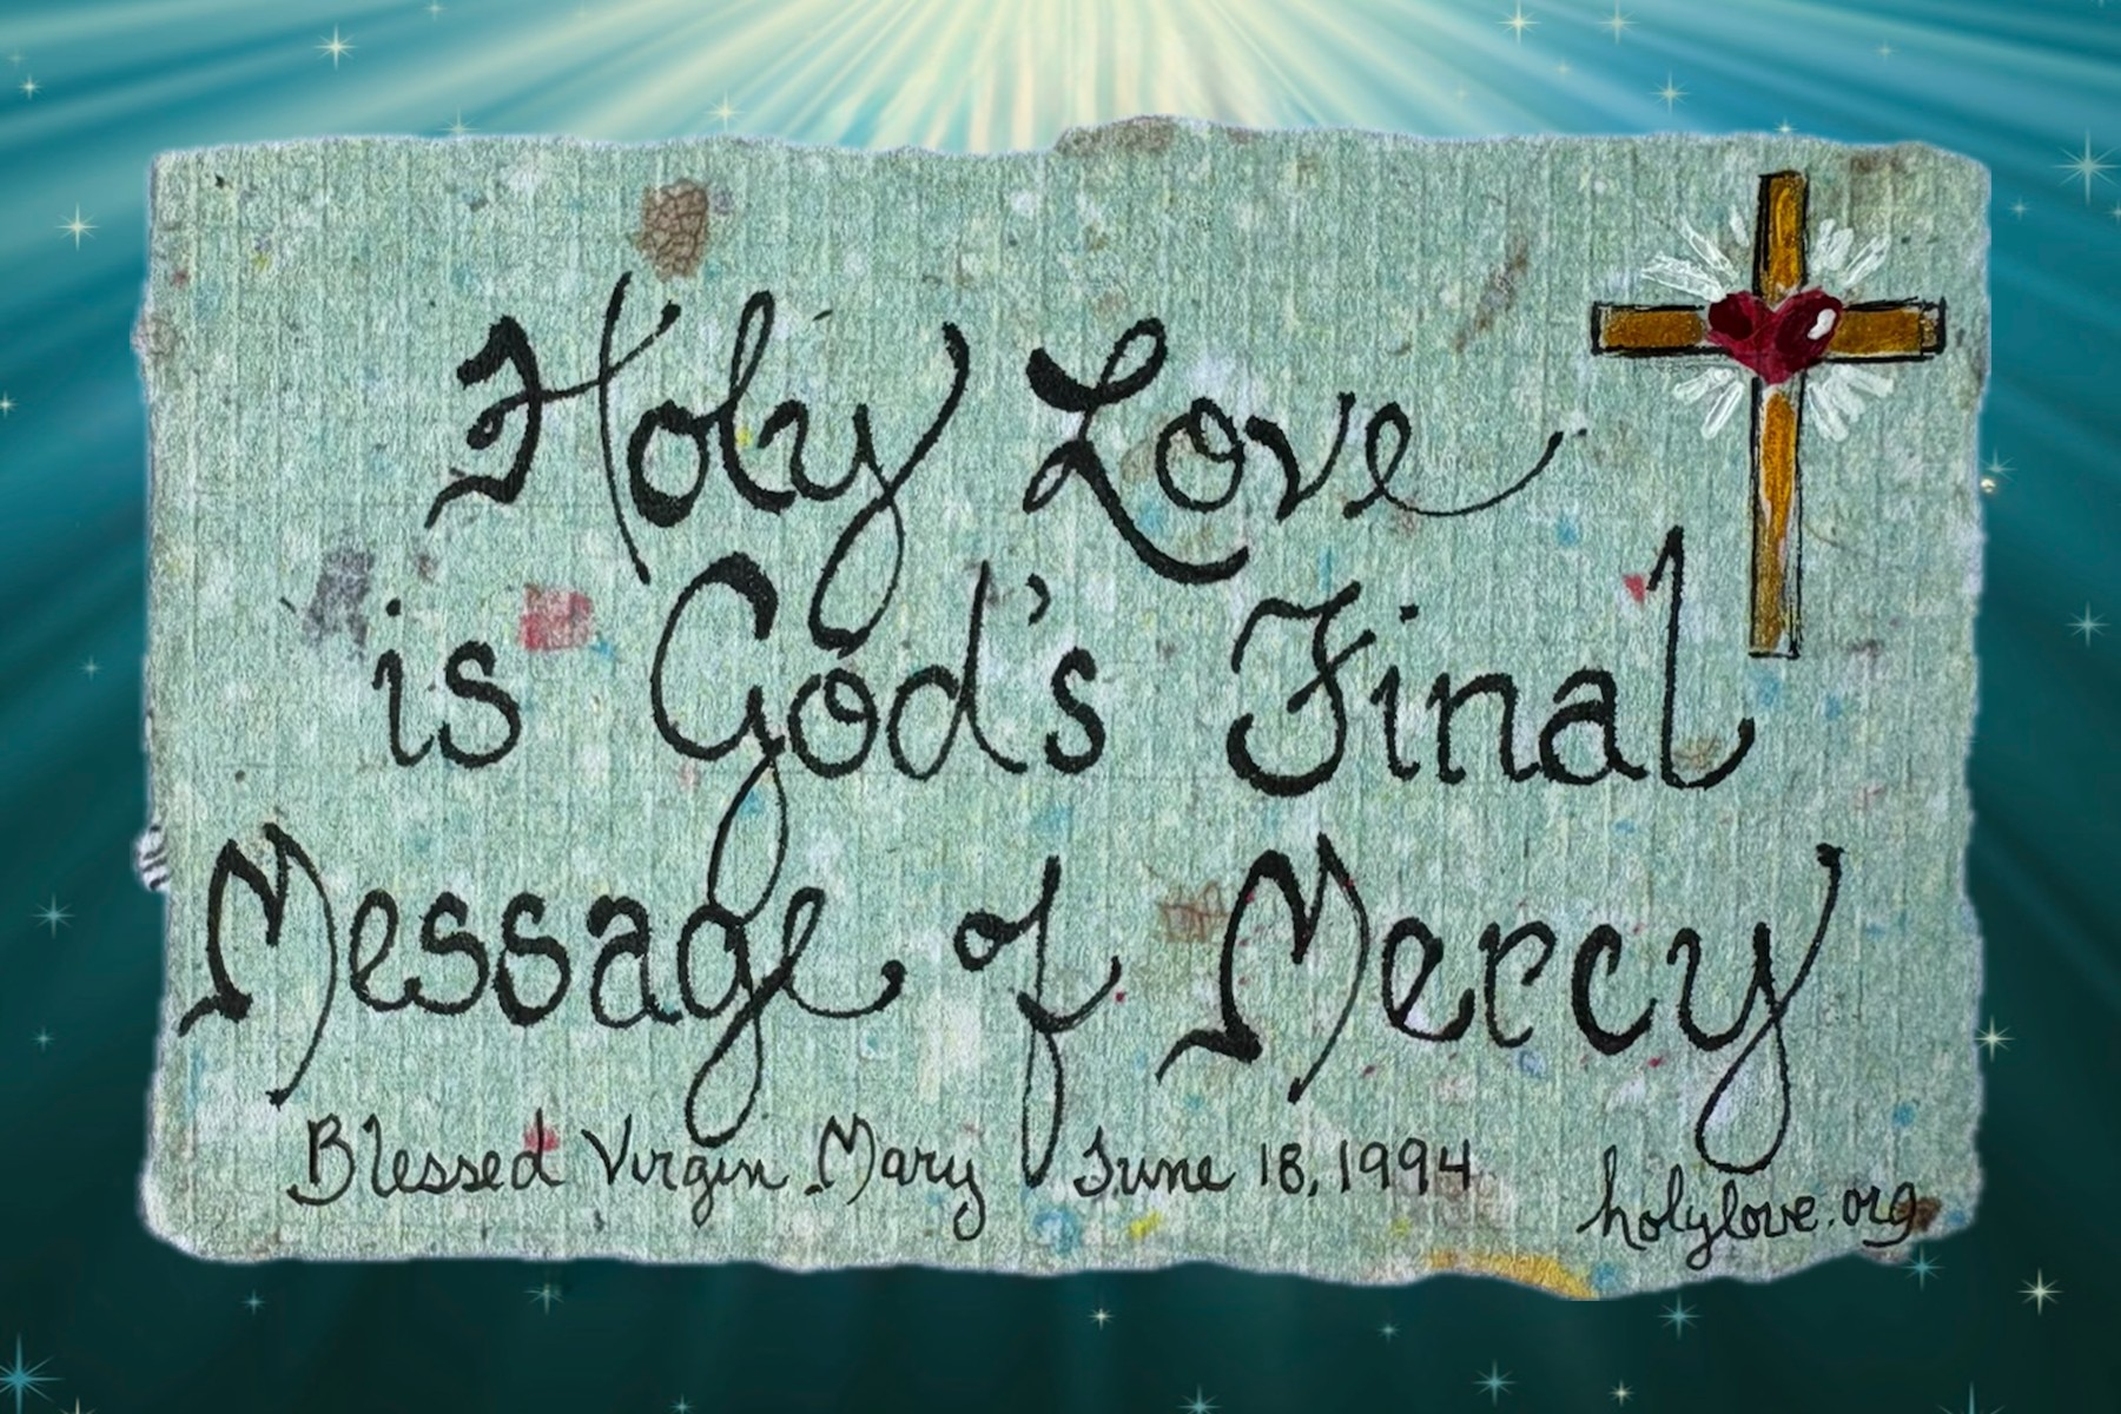 Holy Love
is God's Final
Message of Mercy
Blessed Virgin Mary June 18, 1994
holylove.org